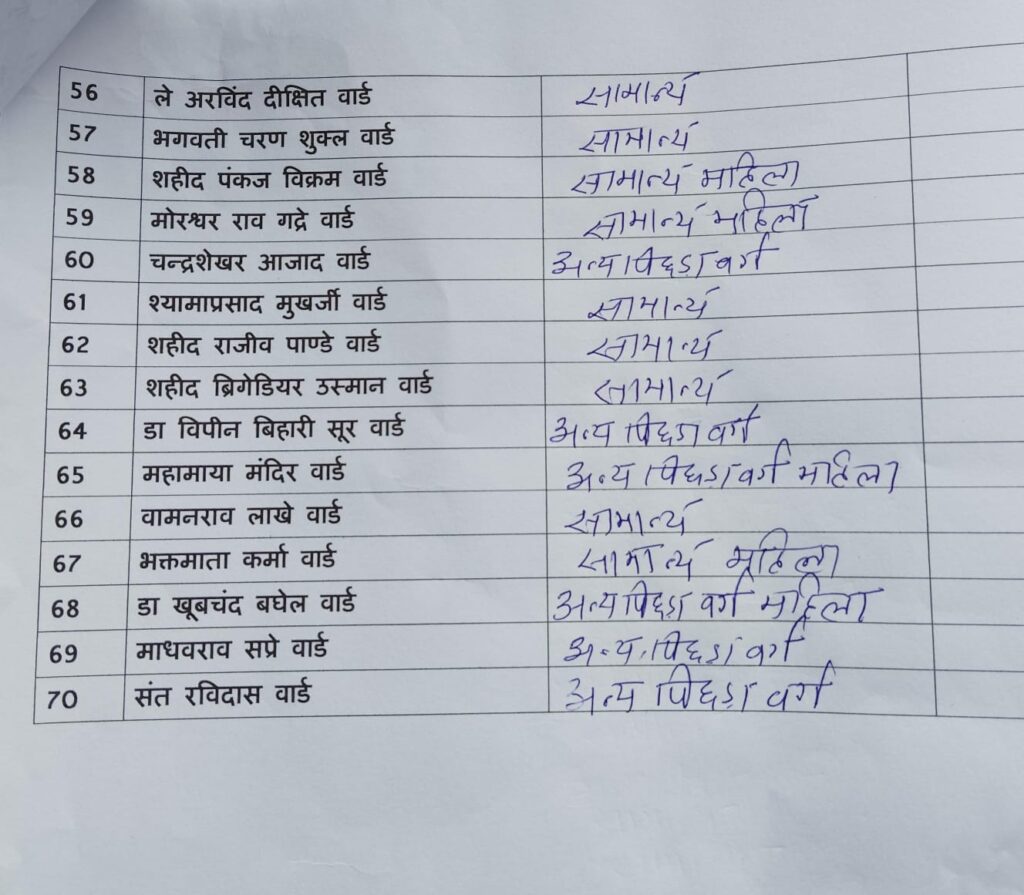 56 ले अरविंद दीक्षित वार्ड सामान्य
57 भगवती चरण शुक्ल वार्ड सामान्य
58 शहीद पंकज विक्रम वार्ड सामान्य महिला
59 मोरश्वर राव गद्रे वार्ड सामान्य महिला
60 चन्द्रशेखर आजाद वार्ड अन्य पिछडा वर्ग
61 श्यामाप्रसाद मुखर्जी वार्ड सामान्य
62 शहीद राजीव पाण्डे वार्ड सामान्य
63 शहीद ब्रिगेडियर उस्मान वार्ड सामान्य
64 डा विपीन बिहारी सूर वार्ड अन्य पिछडा वर्ग
65 महामाया मंदिर वार्ड अन्य पिछडा वर्ग महिला
66 वामनराव लाखे वार्ड सामान्य
67 भक्तमाता कर्मा वार्ड सामान्य महिला
68 डा खूबचंद बघेल वार्ड अन्य पिछडा वर्ग महिला
69 माधवराव सप्रे वार्ड अन्य पिछडा वर्ग
70 संत रविदास वार्ड अन्य पिछडा वर्ग